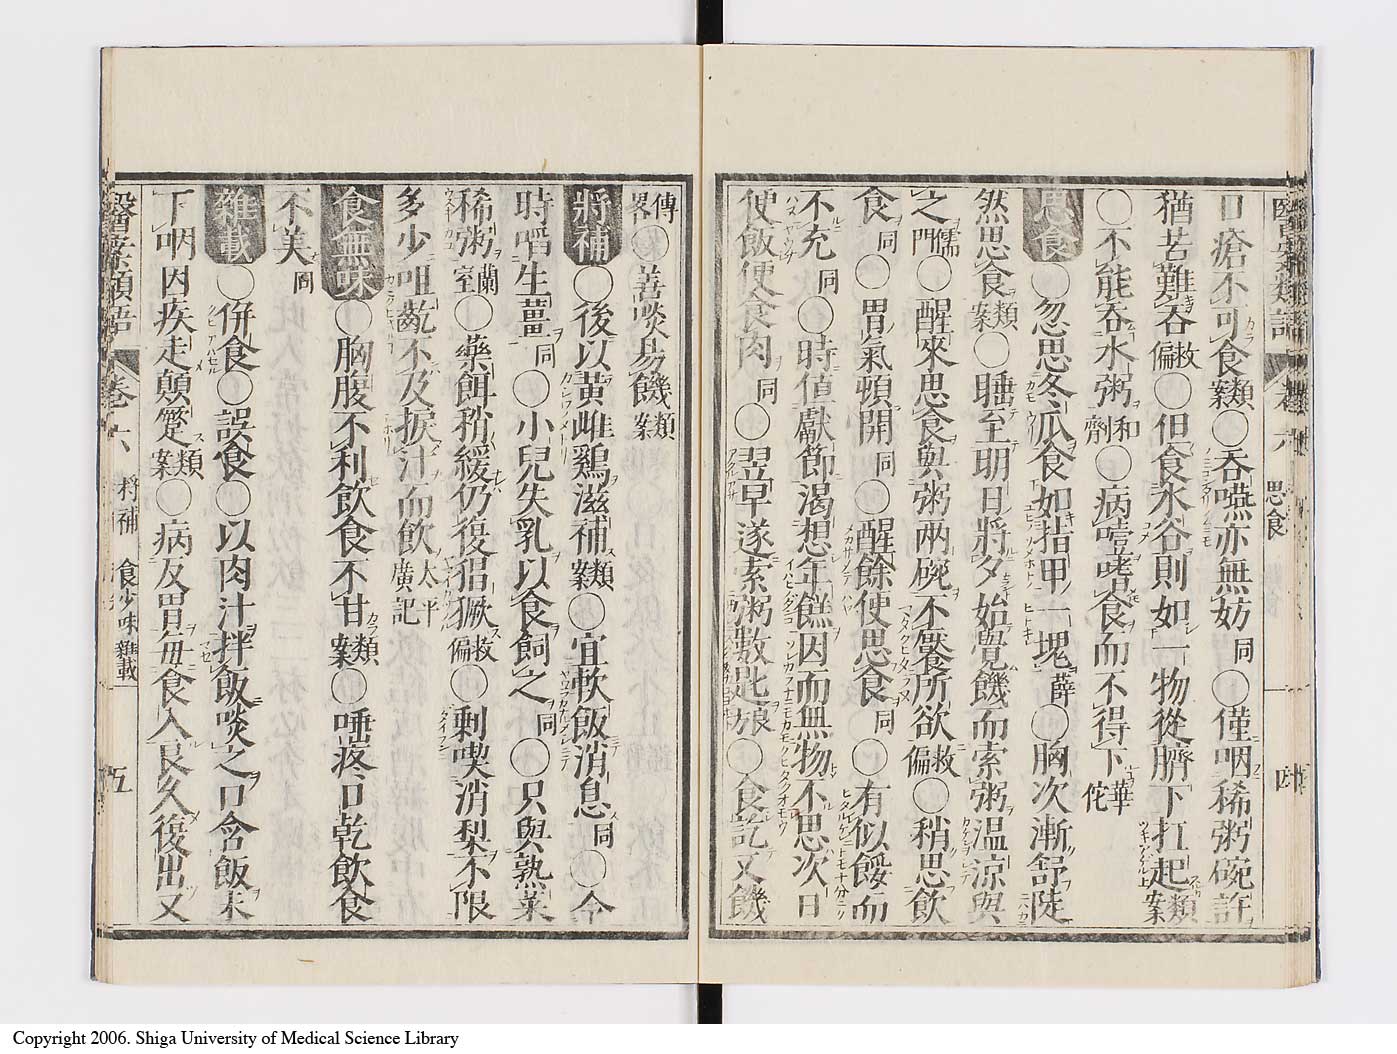 口瘡不可食類案〇吞嚥亦無妨同〇僅咽稀粥碗許
猶苦難吞救偏〇但食水谷則如一物從臍下扛起類案
〇不能吞水粥和劑〇病噎嗜食而不得下華佗
思食〇忽思冬瓜食如指甲一塊薛〇胸次漸舒陡
然思食類案〇睡至明日將夕始覺饑而索粥溫涼與
之儒門〇醒來思食與粥兩碗不饜所欲救偏〇稍思飲
食同〇胃氣頓開同〇醒餘便思食同〇有似餒而
不充同〇時值獻節渴想年糕因而無物不思次日
便飯便食肉同〇翌早遂索粥數匙旅〇食訖又饑
傳畧〇善啖易饑類案
將補〇後以黃雌鷄滋補類案〇宜軟飯消息同〇令
時嚼生薑同〇小兒失乳以食飼之同〇只與熟菜
稀粥蘭室〇藥餌稍緩仍復猖獗救偏〇剩喫消梨不限
多少咀齕不及捩汁而飲太平廣記
食無味〇胸腹不利飲食不甘類案〇唾疼口乾飲食
不美同
雜載〇併食〇誤食〇以肉汁拌飯啖之口含飯未
下咽因疾走顛躄類案〇病反胃每食入良久復出又
醫案類語 卷六 思食 四
醫案類語 卷六 將補 食少味 雜載 五
Copyright 2006. Shiga University of Medical Science Library